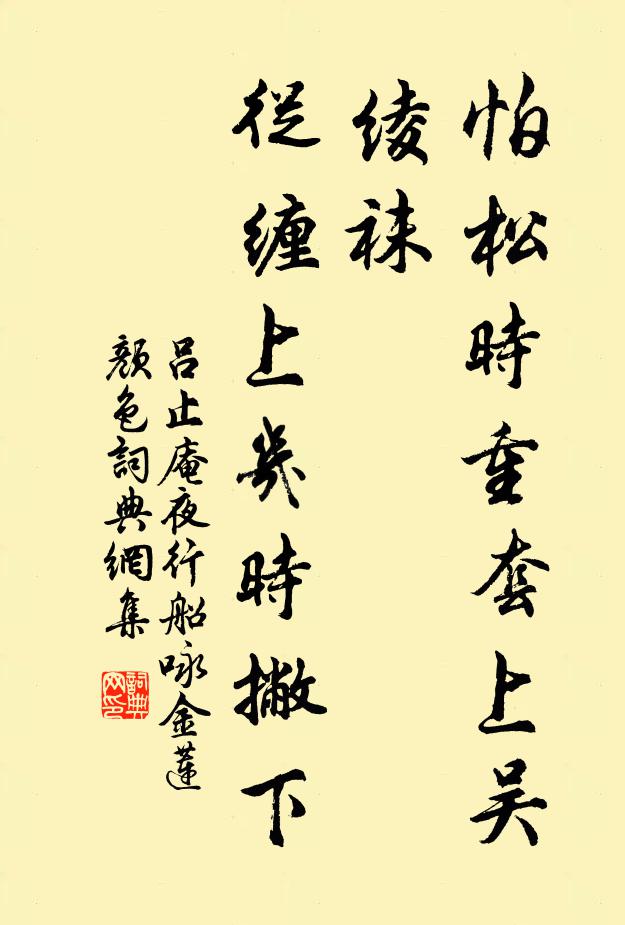 怕松時重套上吴
绫袜
從纏上幾時撇下
吕止庵夜行船咏金蓮
顏色詞典網集
詞典
网印